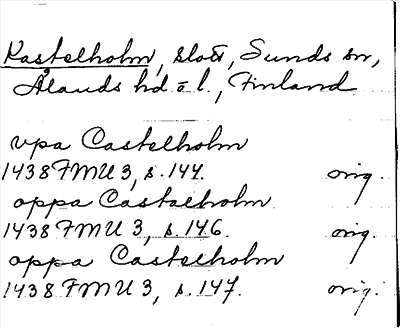 Kastelholm, slott, Sunds sn,
Ålands hd o l., Finland
vpa Castelholm
1438 FMU 3, s. 144. orig.
oppa Castaelholm
1438 FMU 3, s. 146. orig.
oppa Castelholm
1438 FMU 3, s. 147. orig.